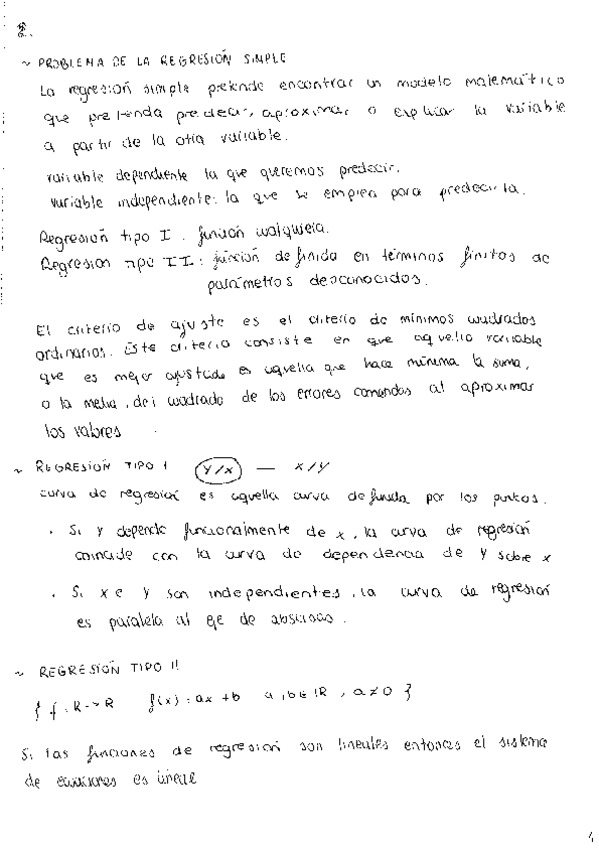 2.
~ PROBLEMA DE LA REGRESIÓN SIMPLE
La regresión simple pretende encontrar un modelo matemático
que pretenda predecir, aproximar o explicar la variable
a partir de la otra variable.
variable dependiente la que queremos predecir.
variable independiente: la que se emplea para predecirla.
Regresión tipo I : función cualquiera.
Regresión tipo II : función definida en términos finitos de
parámetros desconocidos.
El criterio de ajuste es el criterio de mínimos cuadrados
ordinarios. Este criterio consiste en que aquella variable
que es mejor ajustada es aquella que hace mínima la suma,
o la media, del cuadrado de los errores cometidos al aproximar
los valores
~ REGRESIÓN TIPO I (Y/X) — X/Y
curva de regresión es aquella curva definida por los puntos.
. Si y depende funcionalmente de x, la curva de regresión
coincide con la curva de dependencia de y sobre x
. Si x e y son independientes, la curva de regresión
es paralela al eje de abscisas.
~ REGRESIÓN TIPO II
{ f: R -> R f(x) = ax + b a, b ∈ IR, a ≠ 0 }
Si las funciones de regresión son lineales entonces el sistema
de ecuaciones es lineal